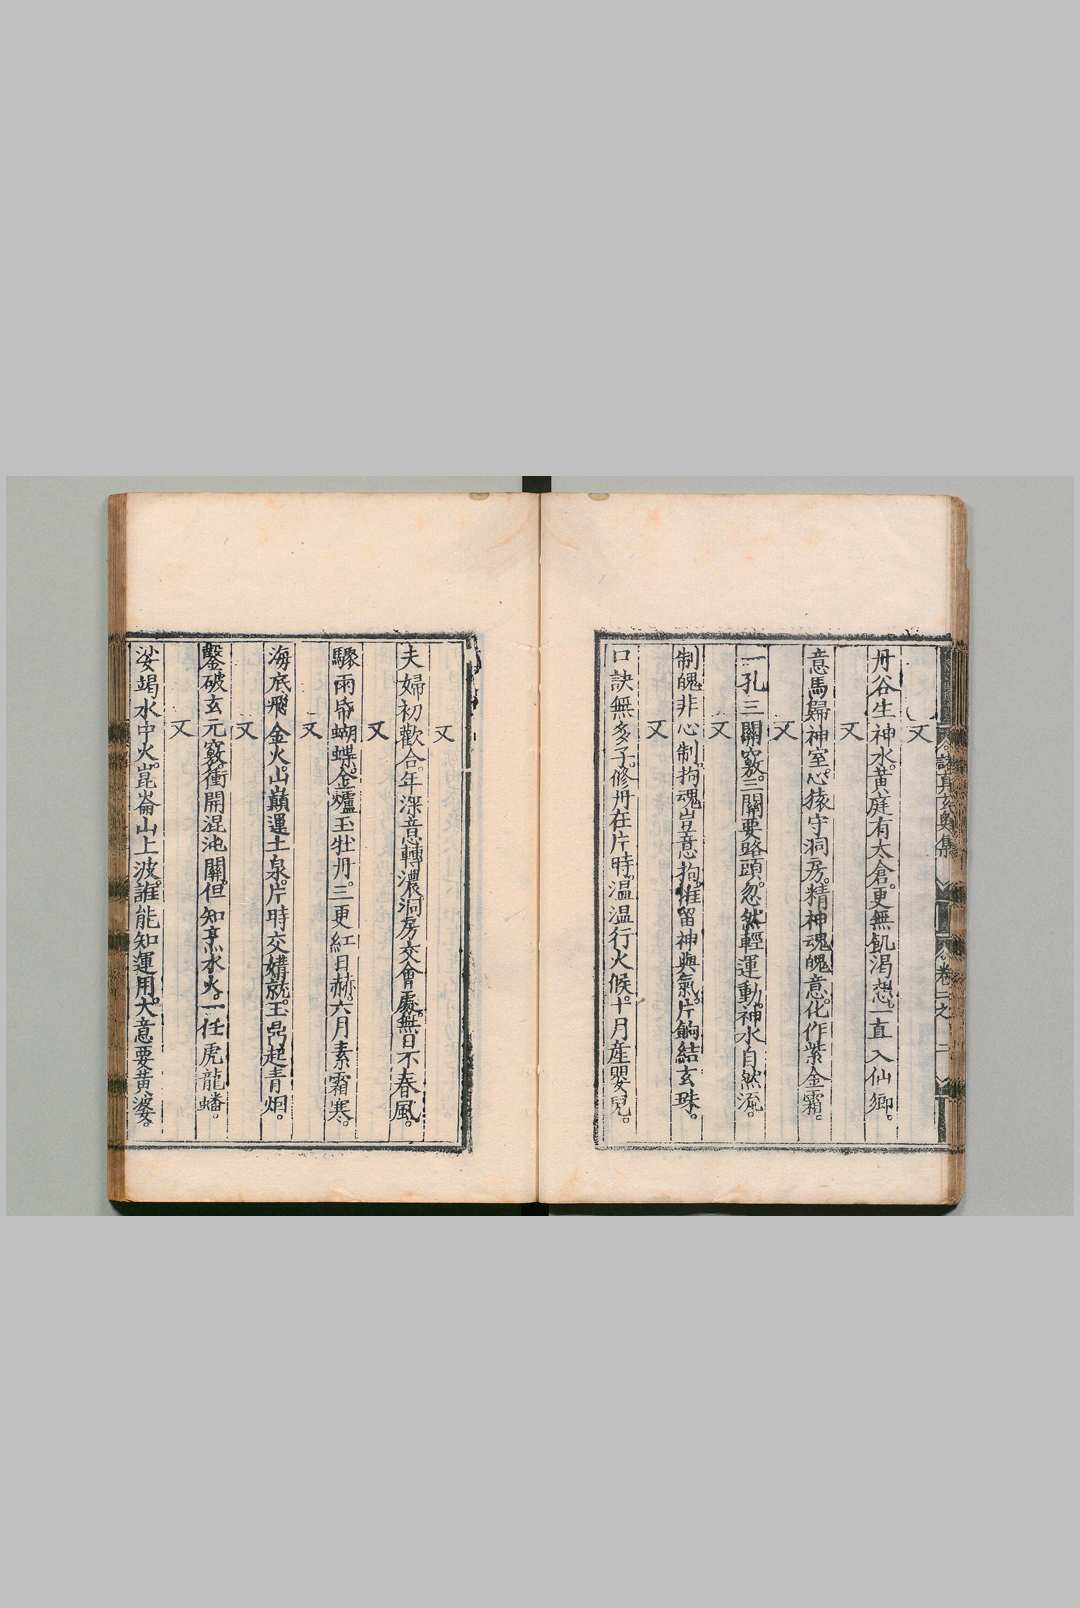 又
丹谷生神水。黃庭有太倉。更無飢渴想。一直入仙鄉。
又
意馬歸神室。心猿守洞房。精神魂魄意。化作紫金霜。
又
一孔三關竅。三關要路頭。忽然輕運動。神水自然流。
又
制魄非心制。拘魂豈意拘。惟留神與氣。片餉結玄珠。
又
口訣無多子。修丹在片時。溫溫行火候。十月產嬰兒。
又
夫婦初歡合。年深意轉濃。洞房交會處。無日不春風。
又
驟雨帋蝴蝶。金爐玉牡丹。三更紅日赫。六月素霜寒。
又
海底飛金火。山巔運土泉。片時交媾就。玉鼎起青烟。
又
鑿破玄元竅。衝開混沌關。但知烹水火。一任虎龍蟠。
又
娑竭水中火。崑崙山上波。誰能知運用。大意要黃婆。
諸真玄奧集
卷二之
二